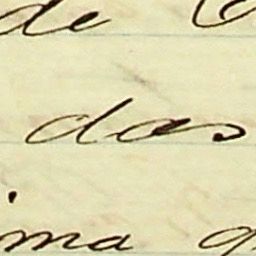 de
das
ima q